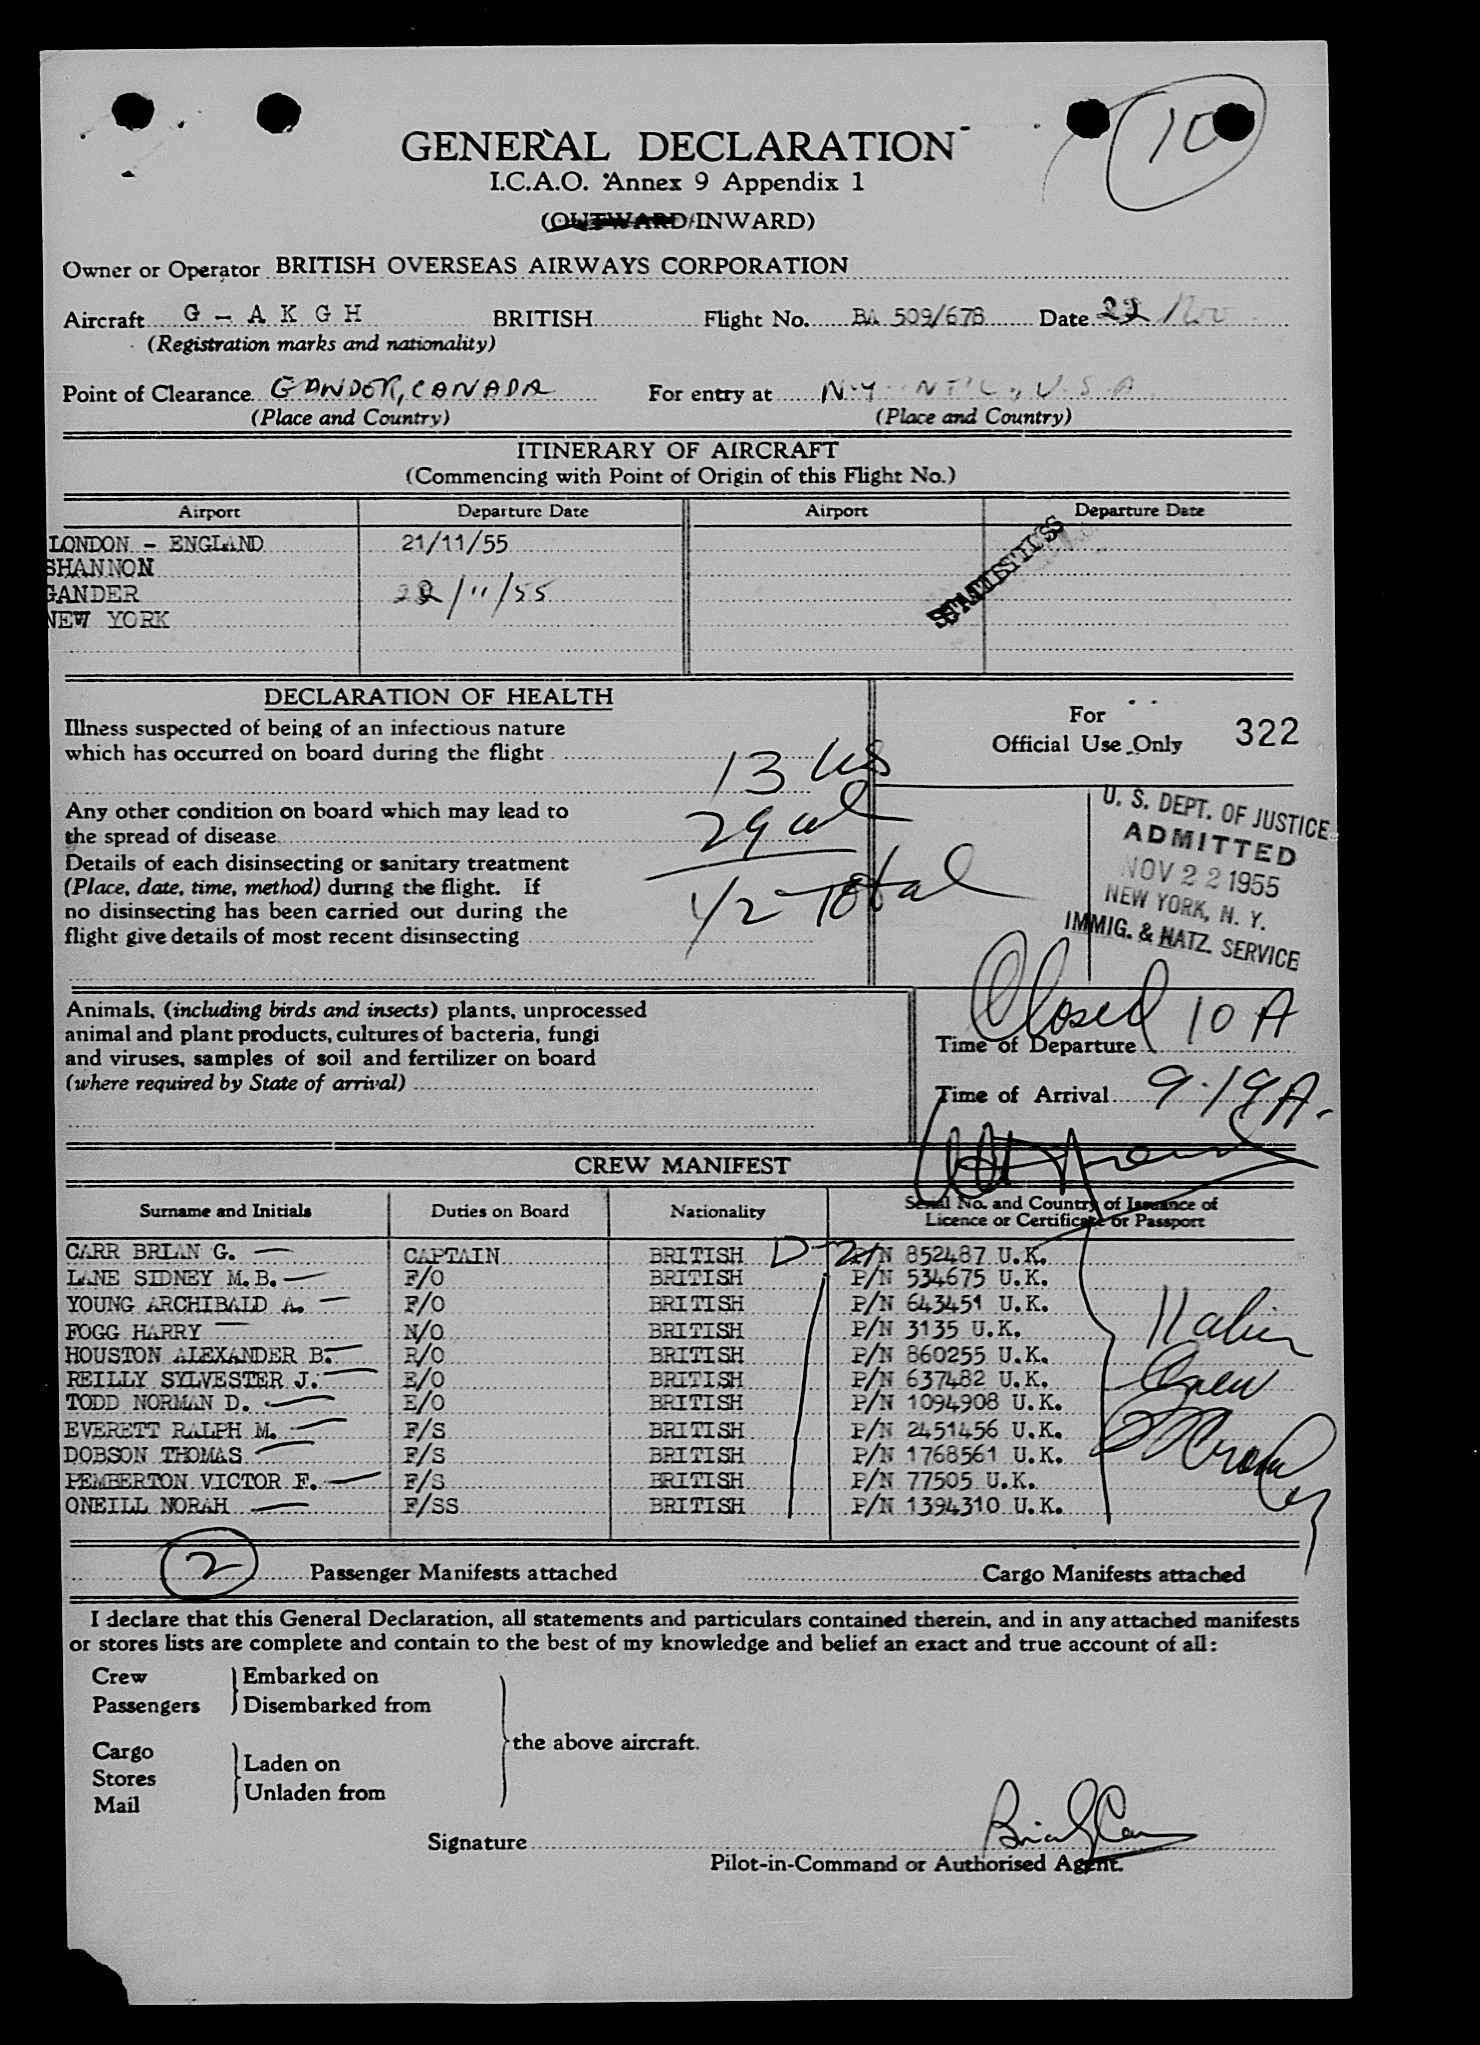 10
GENERAL DECLARATION
I.C.A.O. Annex 9 Appendix 1
(OUTWARD/INWARD)
Owner or Operator BRITISH OVERSEAS AIRWAYS CORPORATION
Aircraft G - A K G H BRITISH Flight No. BA 509/678 Date 22 Nov
(Registration marks and nationality)
Point of Clearance GANDER, CANADA For entry at N.Y. INT'L., U.S.A.
(Place and Country) (Place and Country)
ITINERARY OF AIRCRAFT
(Commencing with Point of Origin of this Flight No.)
Airport Departure Date Airport Departure Date
LONDON - ENGLAND 21/11/55
SHANNON
GANDER 22/11/55
NEW YORK
STATISTICS
DECLARATION OF HEALTH
Illness suspected of being of an infectious nature
which has occurred on board during the flight
For
Official Use Only 322
13 us
Any other condition on board which may lead to
the spread of disease
29 al
Details of each disinsecting or sanitary treatment
(Place, date, time, method) during the flight. If
no disinsecting has been carried out during the
flight give details of most recent disinsecting
42 Total
U. S. DEPT. OF JUSTICE
ADMITTED
NOV 22 1955
NEW YORK, N. Y.
IMMIG. & NATZ. SERVICE
Animals, (including birds and insects) plants, unprocessed
animal and plant products, cultures of bacteria, fungi
and viruses, samples of soil and fertilizer on board
(where required by State of arrival)
Closed 10 A
Time of Departure
Time of Arrival 9.19 A.
CREW MANIFEST
Surname and Initials Duties on Board Nationality Serial No. and Country of Issuance of
Licence or Certificate or Passport
CARR BRIAN G. CAPTAIN BRITISH D-2 P/N 852487 U.K.
LANE SIDNEY M.B. F/O BRITISH P/N 534675 U.K.
YOUNG ARCHIBALD A. F/O BRITISH P/N 643451 U.K.
FOGG HARRY N/O BRITISH P/N 3135 U.K.
HOUSTON ALEXANDER B. R/O BRITISH P/N 860255 U.K.
REILLY SYLVESTER J. E/O BRITISH P/N 637482 U.K.
TODD NORMAN D. E/O BRITISH P/N 1094908 U.K.
EVERETT RALPH M. F/S BRITISH P/N 2451456 U.K.
DOBSON THOMAS F/S BRITISH P/N 1768561 U.K.
PEMBERTON VICTOR F. F/S BRITISH P/N 77505 U.K.
ONEILL NORAH F/SS BRITISH P/N 1394310 U.K.
Crew
2 Passenger Manifests attached Cargo Manifests attached
I declare that this General Declaration, all statements and particulars contained therein, and in any attached manifests
or stores lists are complete and contain to the best of my knowledge and belief an exact and true account of all:
Crew Embarked on
Passengers Disembarked from
the above aircraft.
Cargo
Stores Laden on
Mail Unladen from
Signature Brian G Carr
Pilot-in-Command or Authorised Agent.